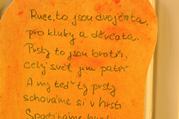 Ruce, to jsou dvojčata,
pro kluky a děvčata.
Prsty to jsou bratři,
celý svět jim patří
A my teď ty prsty
schováme si v hrsti